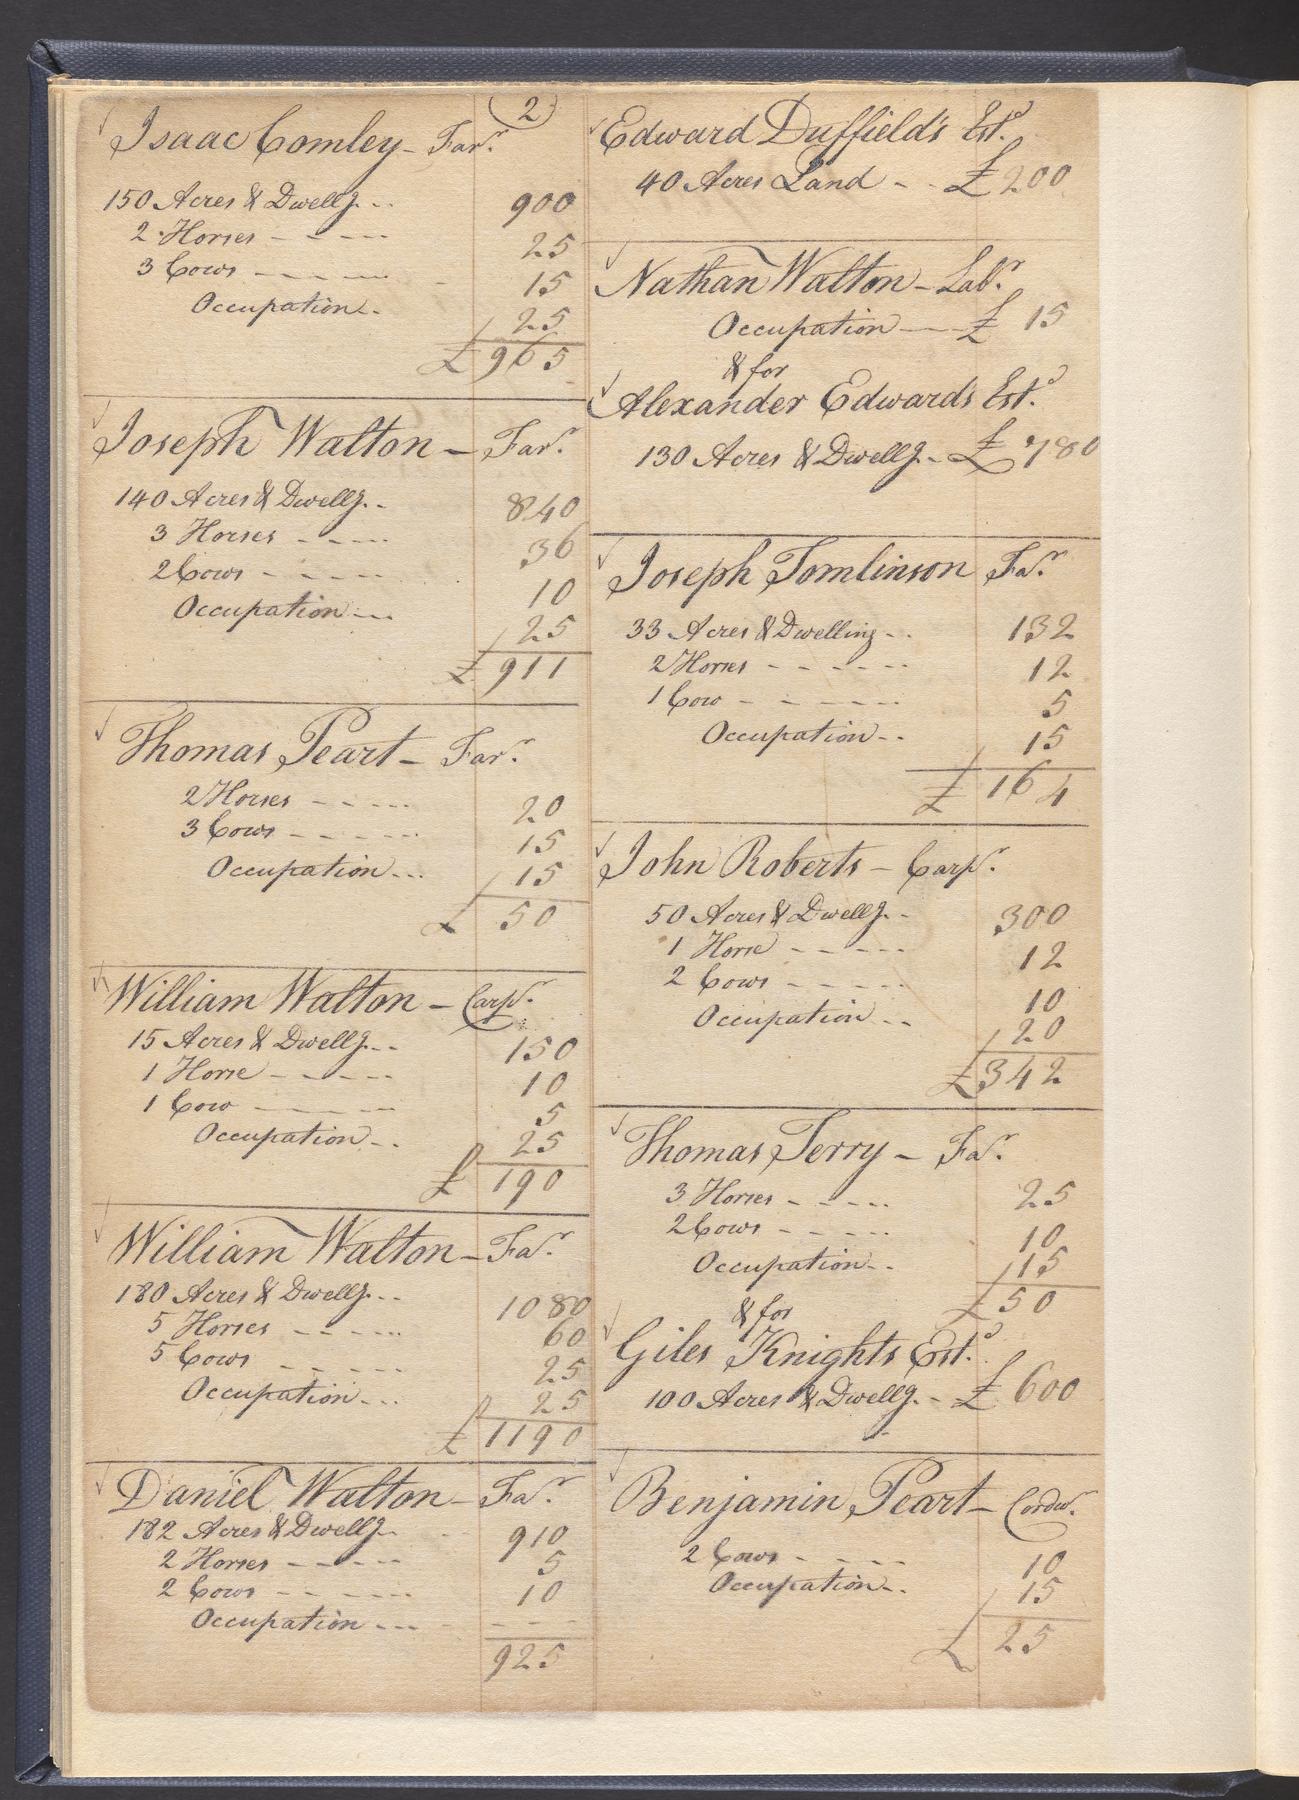 2
Isaac Comley - Far.r
150 Acres & Dwellg. - - 900
2 Horses - - - - - 25
3 Cows - - - - - 15
Occupation - - 25
£ 965
Joseph Walton - Far.r
140 Acres & Dwellg. - 840
3 Horses - - - - - 36
2 Cows - - - - - 10
Occupation - - - 25
£ 911
Thomas Peart - Far.r
2 Horses - - - - - 20
3 Cows - - - - - - 15
Occupation - - - 15
£ 50
William Walton - Carp.r
15 Acres & Dwellg. - - 150
1 Horse - - - - - 10
1 Cow - - - - - 5
Occupation - - 25
£ 190
William Walton - Fa.r
180 Acres & Dwellg. - - 1080
5 Horses - - - - - 60
5 Cows - - - - - 25
Occupation - - - 25
£ 1190
Daniel Walton - Fa.r
182 Acres & Dwellg - - 910
2 Horses - - - - - 5
2 Cows - - - - - 10
Occupation - - - - - -
925
Edward Duffield's Est.d
40 Acres Land - - £ 200
Nathan Walton - Lab.r
Occupation - - £ 15
& for
Alexander Edwards Est.d
130 Acres & Dwellg. - £ 780
Joseph Tomlinson Fa.r
33 Acres & Dwelling - - 132
2 Horses - - - - - - 12
1 Cow - - - - - - 5
Occupation - - 15
£ 164
John Roberts - Carp.r
50 Acres & Dwellg. - 300
1 Horse - - - - - 12
2 Cows - - - - - 10
Occupation - - 20
£ 342
Thomas Terry - Fa.r
3 Horses - - - - - 25
2 Cows - - - - - 10
Occupation - - 15
£ 50
& for
Giles Knights Est.d
100 Acres & Dwellg. - £ 600
Benjamin Peart - Cordw.r
2 Cows - - - - 10
Occupation - - 15
£ 25